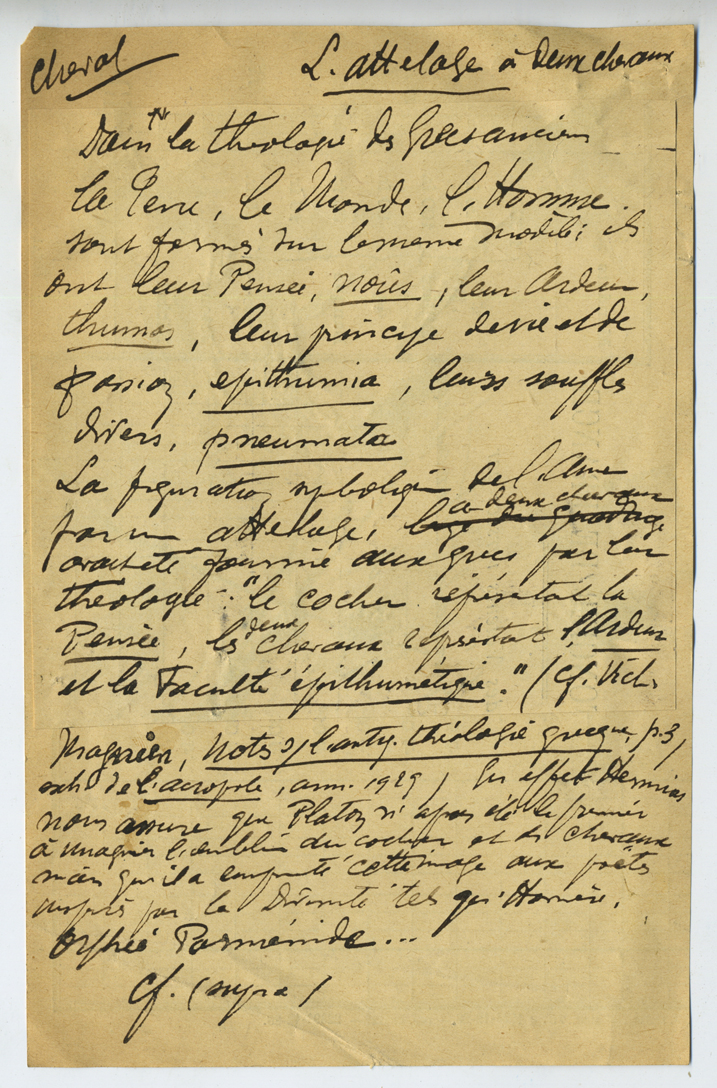 Cheval L'attelage à deux chevaux
Dans la théologie des Grecs anciens
la Terre, le Monde, l'Homme
sont formés sur le même modèle; ils
ont leur Pensée, noûs, leur Ardeur,
thumos, leur principe de vie et de
passion, epithumia, leurs souffles
divers, pneumata
La figuration symbolique de l'Ame
par un attelage, à deux chevaux
avait été fournie aux grecs par leur
théologie: "le cocher représentait la
Pensée, les deux chevaux représentait l'Ardeur
et la Faculté épithumétique." (Cf. Vict.
Magnien, Notes s/ l'antiq. théologie grecque, p. 3,
extr. de l'acropole, ann. 1929) En effet Hermias
nous assure que Platon n'a pas été le premier
à imaginer l'emblème du cocher et des chevaux
mais qu'il a emprunté cette image aux poètes
inspirés par la Divinité tels qu'Homère,
Orphée Parménide...
Cf. (supra)